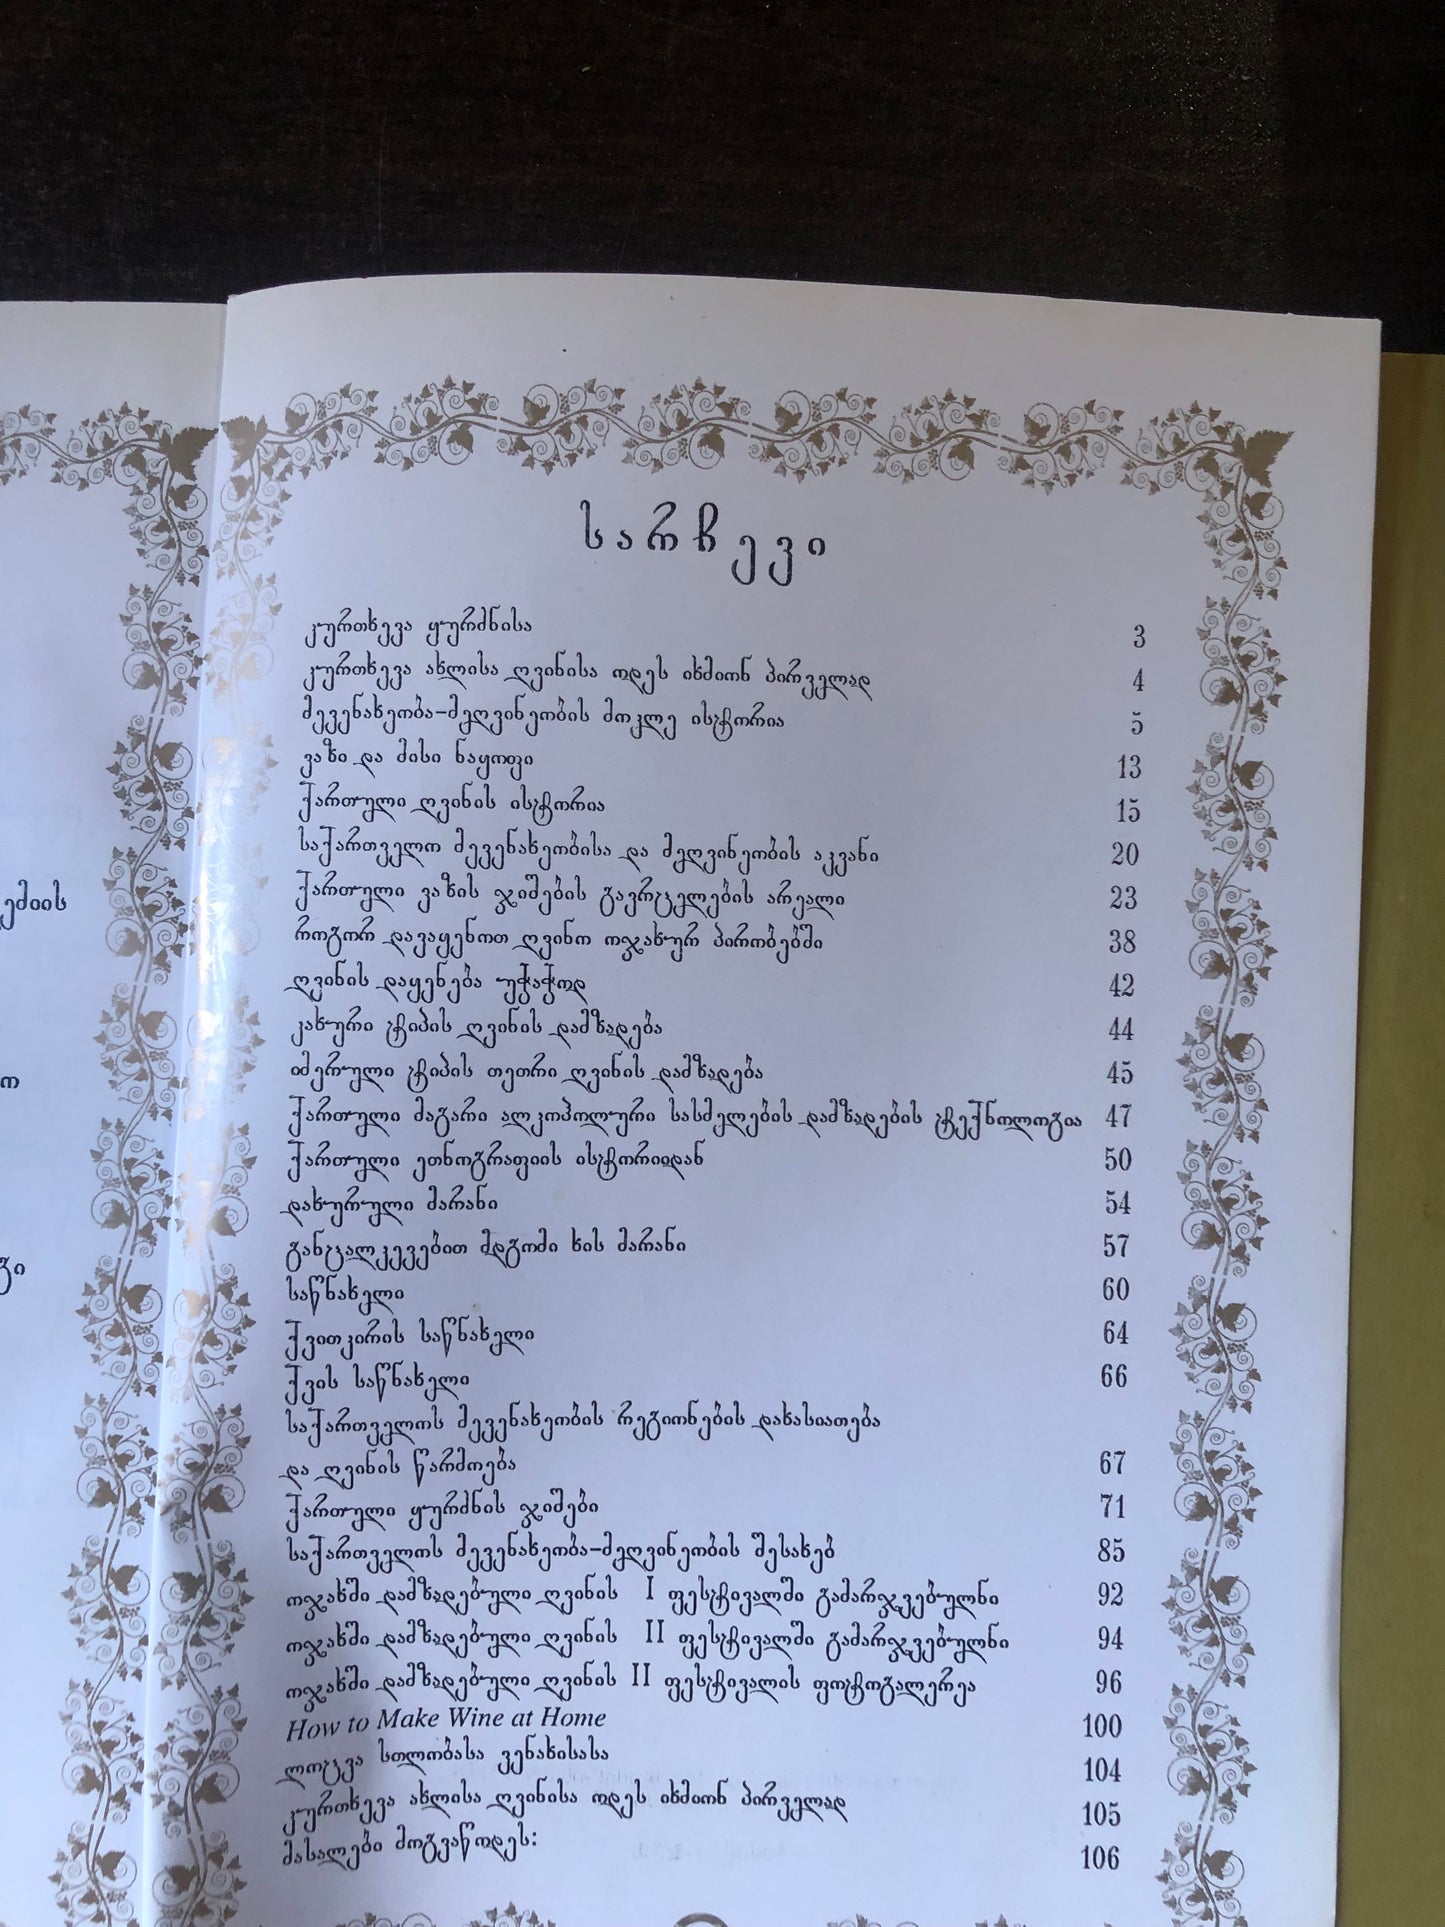 ემიის
ო
გი
სარჩევი
კურთხევა ყურძნისა 3
კურთხევა ახლისა ღვინისა ოდეს იხმიონ პირველად 4
მევენახეობა-მეღვინეობის მოკლე ისტორია 5
ვაზი და მისი ნაყოფი 13
ქართული ღვინის ისტორია 15
საქართველო მევენახეობისა და მეღვინეობის აკვანი 20
ქართული ვაზის ჯიშების გავრცელების არეალი 23
როგორ დავაყენოთ ღვინო ოჯახურ პირობებში 38
ღვინის დაყენება უჭაჭოდ 42
კახური ტიპის ღვინის დამზადება 44
იმერული ტიპის თეთრი ღვინის დამზადება 45
ქართული მაგარი ალკოჰოლური სასმელების დამზადების ტექნოლოგია 47
ქართული ეთნოგრაფიის ისტორიიდან 50
დახურული მარანი 54
განცალკევებით მდგომი ხის მარანი 57
საწნახელი 60
ქვითკირის საწნახელი 64
ქვის საწნახელი 66
საქართველოს მევენახეობის რეგიონების დახასიათება
და ღვინის წარმოება 67
ქართული ყურძნის ჯიშები 71
საქართველოს მევენახეობა-მეღვინეობის შესახებ 85
ოჯახში დამზადებული ღვინის I ფესტივალში გამარჯვებულნი 92
ოჯახში დამზადებული ღვინის II ფესტივალში გამარჯვებულნი 94
ოჯახში დამზადებული ღვინის II ფესტივალის ფოტოგალერეა 96
How to Make Wine at Home 100
ლოცვა სთლობასა ვენახისასა 104
კურთხევა ახლისა ღვინისა ოდეს იხმიონ პირველად 105
მასალები მოგვაწოდეს: 106